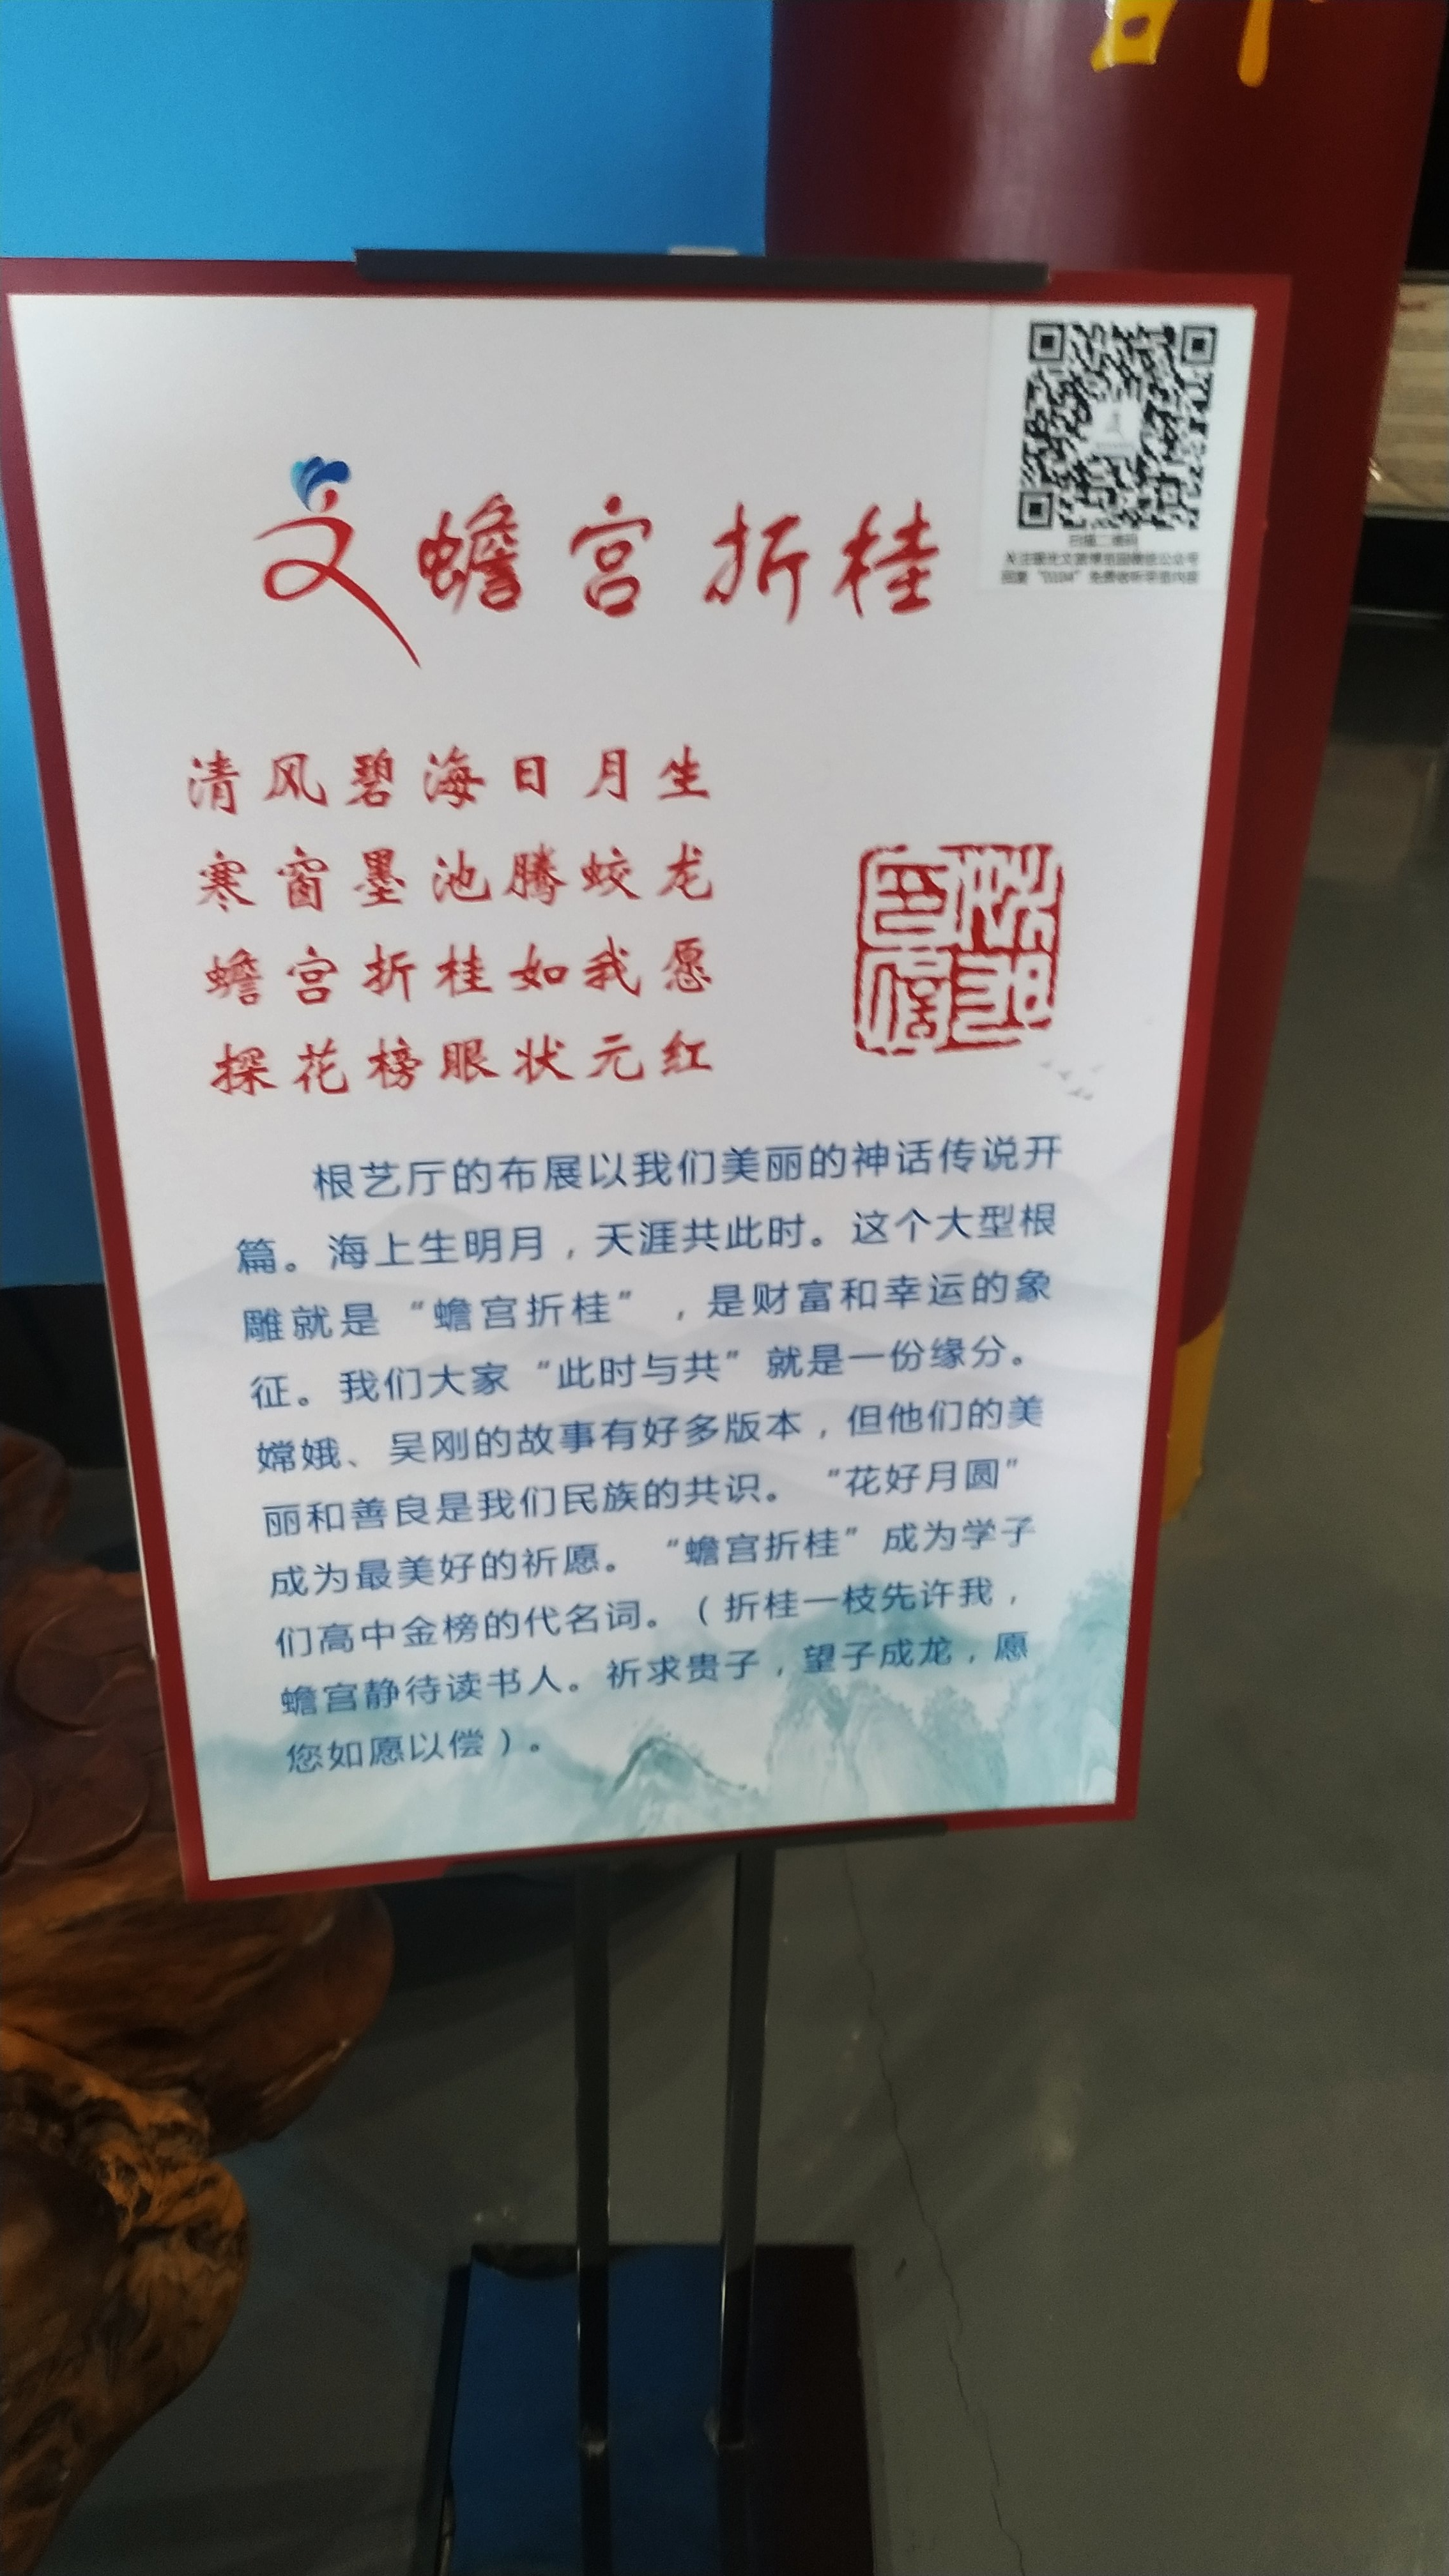 文 蟾宫折桂
扫描二维码
清风碧海日月生
寒窗墨池腾蛟龙
蟾宫折桂如我愿
探花榜眼状元红
根艺厅的布展以我们美丽的神话传说开
篇。海上生明月，天涯共此时。这个大型根
雕就是“蟾宫折桂”，是财富和幸运的象
征。我们大家“此时与共”就是一份缘分。
嫦娥、吴刚的故事有好多版本，但他们的美
丽和善良是我们民族的共识。“花好月圆”
成为最美好的祈愿。“蟾宫折桂”成为学子
们高中金榜的代名词。（折桂一枝先许我，
蟾宫静待读书人。祈求贵子，望子成龙，愿
您如愿以偿）。